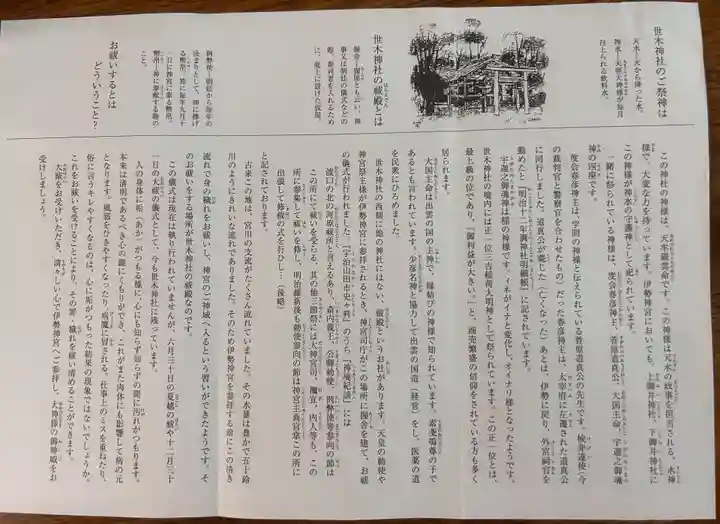 世木神社のご祭神は
天水―天から降った水。
神水―天照大神様が毎月
召上られる飲料水。
この神社の神様は、天水雞雲命であり、この神様は天水の政事を担当される、水神
様で、大変な力を持っています。伊勢神宮においても、上御井神社、下御井神社に
この神様が神水の守護神として祀られています。
一緒に祭られている神様は、度会春彦神主、菅原道真公、大国主命、宇迦之御魂
神の四座です。
度会春彦神主は、学問の神様と伝えられている菅原道真公の先生です。検非違使（今
の裁判官と警察官を合わせたもの）だった春彦神主は、太宰府に左遷された道真公
に同行しました。道真公が薨じた（亡くなった）あとは、伊勢に戻り、外宮祠官を
勤めたと「明治十二年調神社明細帳」に記されています。
宇迦之御魂神は稲の神様です。イネがイナと変化し、オイナリ様となったようです。
世木神社の境内には正一位三吉稲荷大明神として祭られています。この正一位とは、
最上級の位であり、『御利益が大きい』と、商売繁盛の信仰をされている方も多く
居られます。
大国主命は出雲の国の主神で、縁結びの神様で知られています。素戔嗚尊の子で
あるとも言われています。少彦名神と協力して出雲の国造（経営）をし、医薬の道
を民衆にひろめました。
世木神社の祓殿とは
祓舎―祓屋とも云い、神
事又は朝廷の儀式などの
際、参列者を入れるため
に、庭上に設けた仮屋。
例幣使―朝廷から毎年の
決まりとして、神に捧げ
る勅使。特に毎年九月十
一日に神宮に準る勅使。
幣帛―神に奉献する物の
こと。
世木神社の西側に他の神社にはない、祓殿というお社があります。天皇の勅使や
神宮祭主様が伊勢神宮に参拝されるとき、神宮司庁がこの場所に祓舎を建て、お祓
の儀式が行われました。「宇治山田市史々料」のうち「神境紀談」には
渡口の北の河原祓所と言えるあり、斎内親王、公卿勅使、例幣使等参向の節は
この所にて祓いを受らる、其の他三節祭には大神宮司、禰宜、内人等も、この
所に参集して祓いを修し、明治維新後も勅使参向の節は神宮主典宮掌この所に
出張して修祓の式を行ひし…（後略）
と記されております。
古来この地は、宮川の支流がたくさん流れていました。その水量は豊かで五十鈴
川のようにきれいな流れでありました。そのため伊勢神宮を参拝する前にこの清き
流れで身の穢れをお祓いし、神宮のご神域へ入るという習いができたようです。そ
のお祓いをする場所が世木神社の祓殿なのです。
この儀式は現在は執り行われていませんが、六月三十日の夏越の祓や十二月三十
一日の大祓の儀式として、今も世木神社に残っています。
お祓いするとは
どういうこと？
人の身体に垢（あか）がつもる様に、心にも知らず知らずの間に汚れがつもります。
本来は清明であるべき心の鏡にくもりができ、これがまた肉体にも影響して病の元
となります。風邪をひきやすくなったり、病魔に冒される、仕事上のミスを重ねたり、
俗に言うキレやすくなるのは、心に垢がつもった結果の現象ではないでしょうか。
これをお祓いを受けることにより、その罪・穢れを祓い清めることができます。
大祓をお受けいただき、清々しい心で伊勢神宮へご参拝し、大神様の御神威をお
受けしましょう。